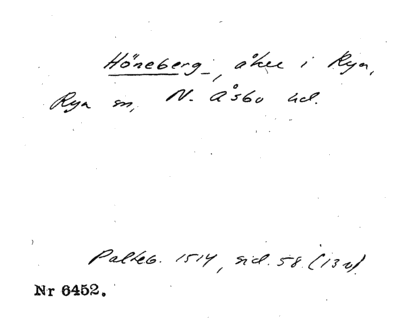 Höneberg, åker i Rya,
Rya sn, N. Åsbo hd.
Palteb. 1514, sid. 58 (13 v).
Nr 6452.